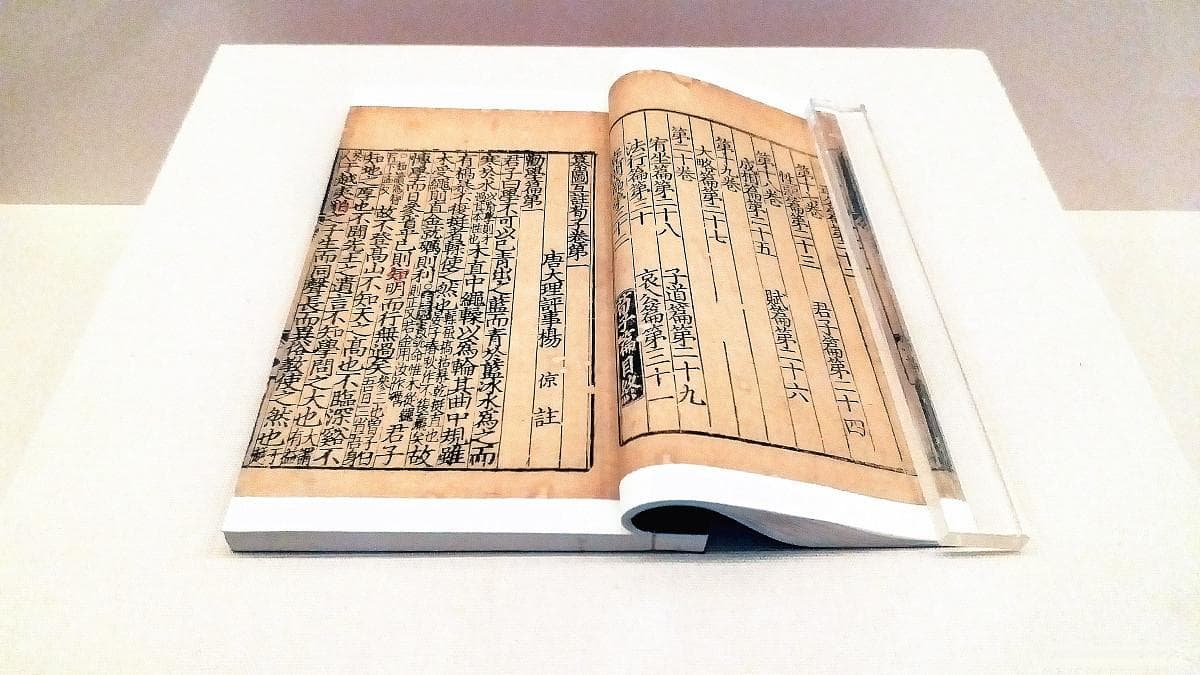 第十七卷
性惡篇第二十三 君子篇第二十四
第十八卷
成相篇第二十五 賦篇第二十六
第十九卷
大畧篇第二十七
第二十卷
宥坐篇第二十八 子道篇第二十九
法行篇第三十 哀公篇第三十一
荀子篇目終
纂圖互註荀子卷第一
唐大理評事楊 倞 註
勸學篇第一
君子曰學不可以已青出之藍而青於藍冰水為之而
寒於水以喻學則才過其本性也木直中繩輮以為輪其曲中規雖
有槁暴不復挺者輮使之然也故
木受繩則直金就礪則利君子
博學而日參省乎己則知明而行無過矣
故不登高山不知天之高也不臨深谿不
知地之厚也不聞先王之遺言不知學問之大也大謂有益
於人干越夷貊之子生而同聲長而異俗教使之然也